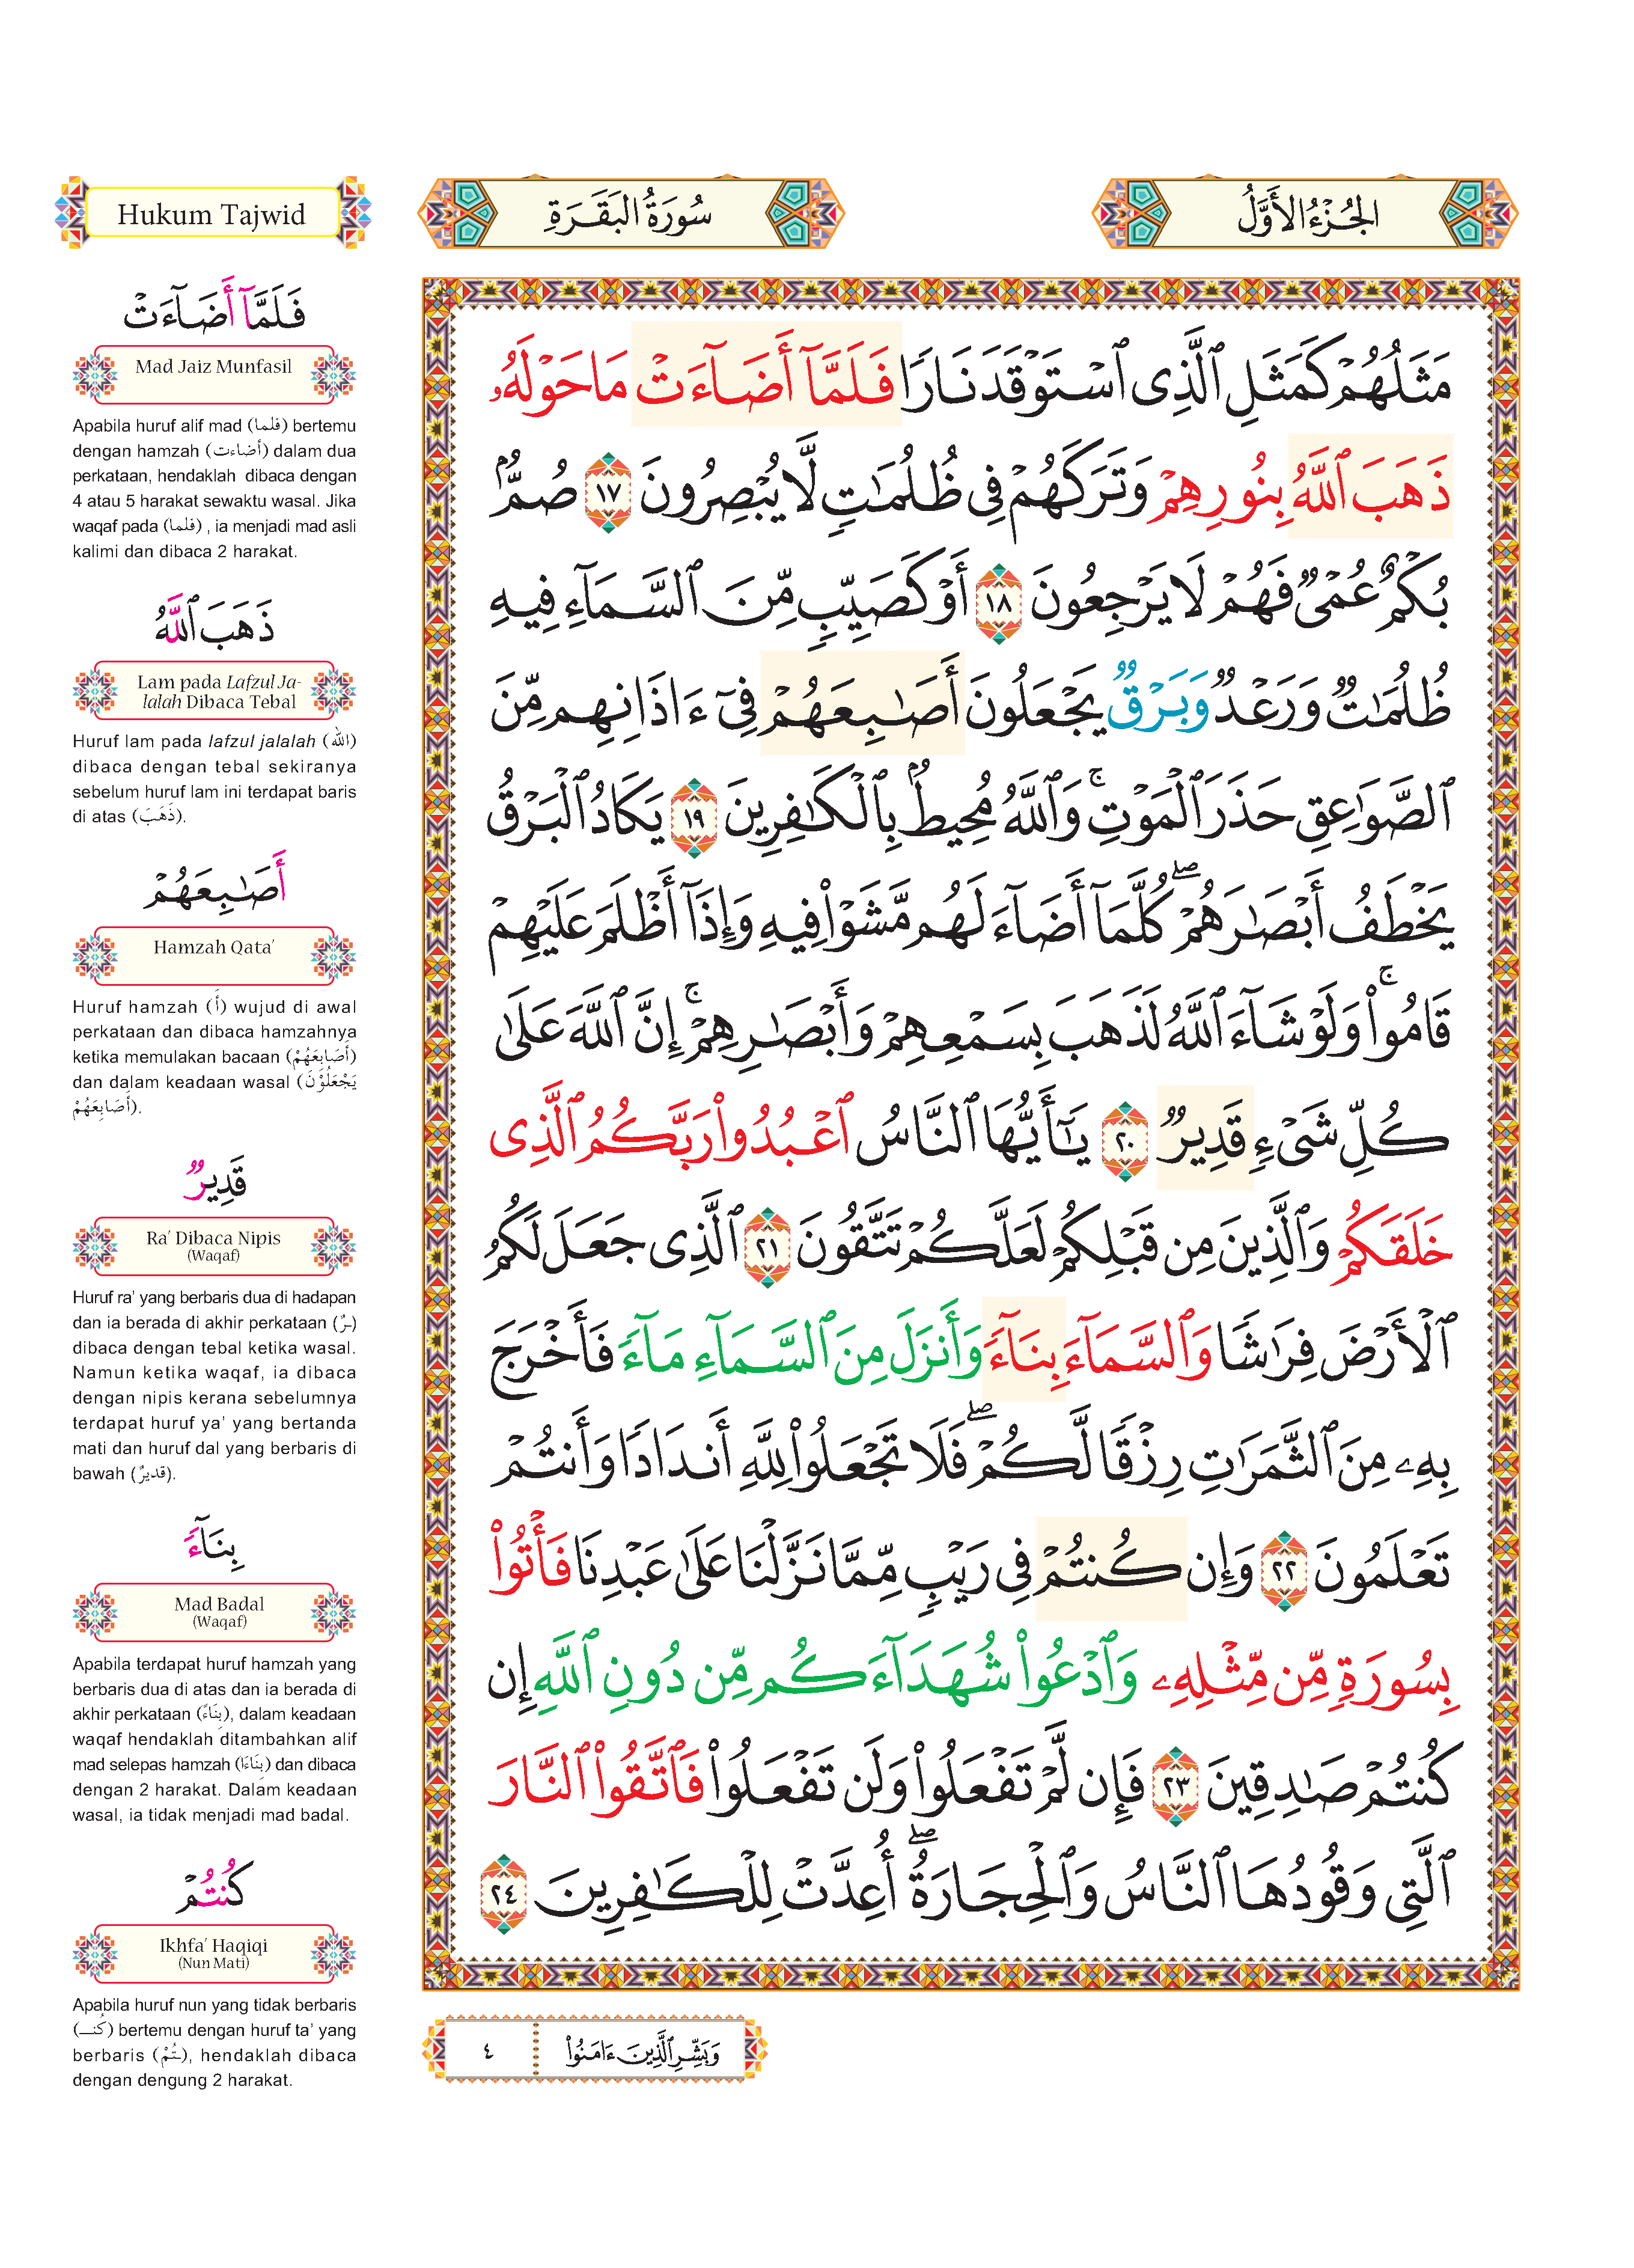 Hukum Tajwid
سُورَةُ البَقَـرَةِ
الجُـزْءُ الأَوَّلُ
فَلَمَّآ أَضَآءَتْ
Mad Jaiz Munfasil
Apabila huruf alif mad (فلما) bertemu
dengan hamzah (أضاءت) dalam dua
perkataan, hendaklah dibaca dengan
4 atau 5 harakat sewaktu wasal. Jika
waqaf pada (فلما) , ia menjadi mad asli
kalimi dan dibaca 2 harakat.
ذَهَبَ ٱللَّهُ
Lam pada Lafzul Ja-
lalah Dibaca Tebal
Huruf lam pada lafzul jalalah (الله)
dibaca dengan tebal sekiranya
sebelum huruf lam ini terdapat baris
di atas (ذَهَبَ).
أَصَـٰبِعَهُمْ
Hamzah Qata’
Huruf hamzah (أَ) wujud di awal
perkataan dan dibaca hamzahnya
ketika memulakan bacaan (أَصَابِعَهُمْ)
dan dalam keadaan wasal (يَجْعَلُوْنَ
أَصَابِعَهُمْ).
قَدِيرٌ
Ra’ Dibaca Nipis
(Waqaf)
Huruf ra’ yang berbaris dua di hadapan
dan ia berada di akhir perkataan (ـرٌ)
dibaca dengan tebal ketika wasal.
Namun ketika waqaf, ia dibaca
dengan nipis kerana sebelumnya
terdapat huruf ya’ yang bertanda
mati dan huruf dal yang berbaris di
bawah (قديرٌ).
بِنَآءً
Mad Badal
(Waqaf)
Apabila terdapat huruf hamzah yang
berbaris dua di atas dan ia berada di
akhir perkataan (بِنَاءً), dalam keadaan
waqaf hendaklah ditambahkan alif
mad selepas hamzah (بِنَاءَا) dan dibaca
dengan 2 harakat. Dalam keadaan
wasal, ia tidak menjadi mad badal.
كُنتُمْ
Ikhfa’ Haqiqi
(Nun Mati)
Apabila huruf nun yang tidak berbaris
(كُنـ) bertemu dengan huruf ta’ yang
berbaris (ـتُمْ), hendaklah dibaca
dengan dengung 2 harakat.
مَثَلُهُمْ كَمَثَلِ ٱلَّذِى ٱسْتَوْقَدَ نَارًا فَلَمَّآ أَضَآءَتْ مَا حَوْلَهُۥ
ذَهَبَ ٱللَّهُ بِنُورِهِمْ وَتَرَكَهُمْ فِى ظُلُمَـٰتٍ لَّا يُبْصِرُونَ ١٧ صُمٌّۢ
بُكْمٌ عُمْىٌ فَهُمْ لَا يَرْجِعُونَ ١٨ أَوْ كَصَيِّبٍ مِّنَ ٱلسَّمَآءِ فِيهِ
ظُلُمَـٰتٌ وَرَعْدٌ وَبَرْقٌ يَجْعَلُونَ أَصَـٰبِعَهُمْ فِىٓ ءَاذَانِهِم مِّنَ
ٱلصَّوَٰعِقِ حَذَرَ ٱلْمَوْتِ ۚ وَٱللَّهُ مُحِيطٌۢ بِٱلْكَـٰفِرِينَ ١٩ يَكَادُ ٱلْبَرْقُ
يَخْطَفُ أَبْصَـٰرَهُمْ ۖ كُلَّمَآ أَضَآءَ لَهُم مَّشَوْا۟ فِيهِ وَإِذَآ أَظْلَمَ عَلَيْهِمْ
قَامُوا۟ ۚ وَلَوْ شَآءَ ٱللَّهُ لَذَهَبَ بِسَمْعِهِمْ وَأَبْصَـٰرِهِمْ ۚ إِنَّ ٱللَّهَ عَلَىٰ
كُلِّ شَىْءٍ قَدِيرٌ ٢٠ يَـٰٓأَيُّهَا ٱلنَّاسُ ٱعْبُدُوا۟ رَبَّكُمُ ٱلَّذِى
خَلَقَكُمْ وَٱلَّذِينَ مِن قَبْلِكُمْ لَعَلَّكُمْ تَتَّقُونَ ٢١ ٱلَّذِى جَعَلَ لَكُمُ
ٱلْأَرْضَ فِرَٰشًا وَٱلسَّمَآءَ بِنَآءً وَأَنزَلَ مِنَ ٱلسَّمَآءِ مَآءً فَأَخْرَجَ
بِهِۦ مِنَ ٱلثَّمَرَٰتِ رِزْقًا لَّكُمْ ۖ فَلَا تَجْعَلُوا۟ لِلَّهِ أَندَادًا وَأَنتُمْ
تَعْلَمُونَ ٢٢ وَإِن كُنتُمْ فِى رَيْبٍ مِّمَّا نَزَّلْنَا عَلَىٰ عَبْدِنَا فَأْتُوا۟
بِسُورَةٍ مِّن مِّثْلِهِۦ وَٱدْعُوا۟ شُهَدَآءَكُم مِّن دُونِ ٱللَّهِ إِن
كُنتُمْ صَـٰدِقِينَ ٢٣ فَإِن لَّمْ تَفْعَلُوا۟ وَلَن تَفْعَلُوا۟ فَٱتَّقُوا۟ ٱلنَّارَ
ٱلَّتِى وَقُودُهَا ٱلنَّاسُ وَٱلْحِجَارَةُ ۖ أُعِدَّتْ لِلْكَـٰفِرِينَ ٢٤
وَبَشِّرِ ٱلَّذِينَ ءَامَنُوا۟
٤